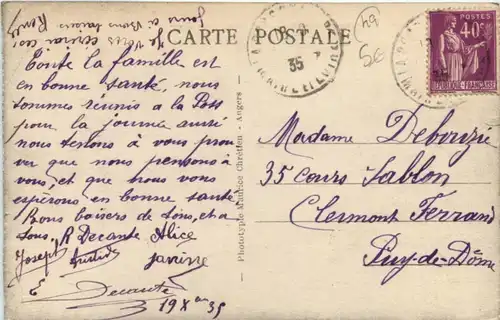 CARTE POSTALE
Toute la famille est
en bonne santé, nous
sommes reunis a la
pour la journée aussi
nous tenons à vous prou
ver que nous pensons à
vous, et que nous vous
espérons en bonne santé
Bons baisers de tous, et a
tous, R Decante Alice
Joseph Janine
E Decante
19 X 35
Phototypie Maurice Chrétien - Angers
35
49
5€
POSTES
40c
REPUBLIQUE FRANÇAISE
Madame Debouzie
35 Cours Sablon
Clermont Ferrand
Puy-de-Dôme